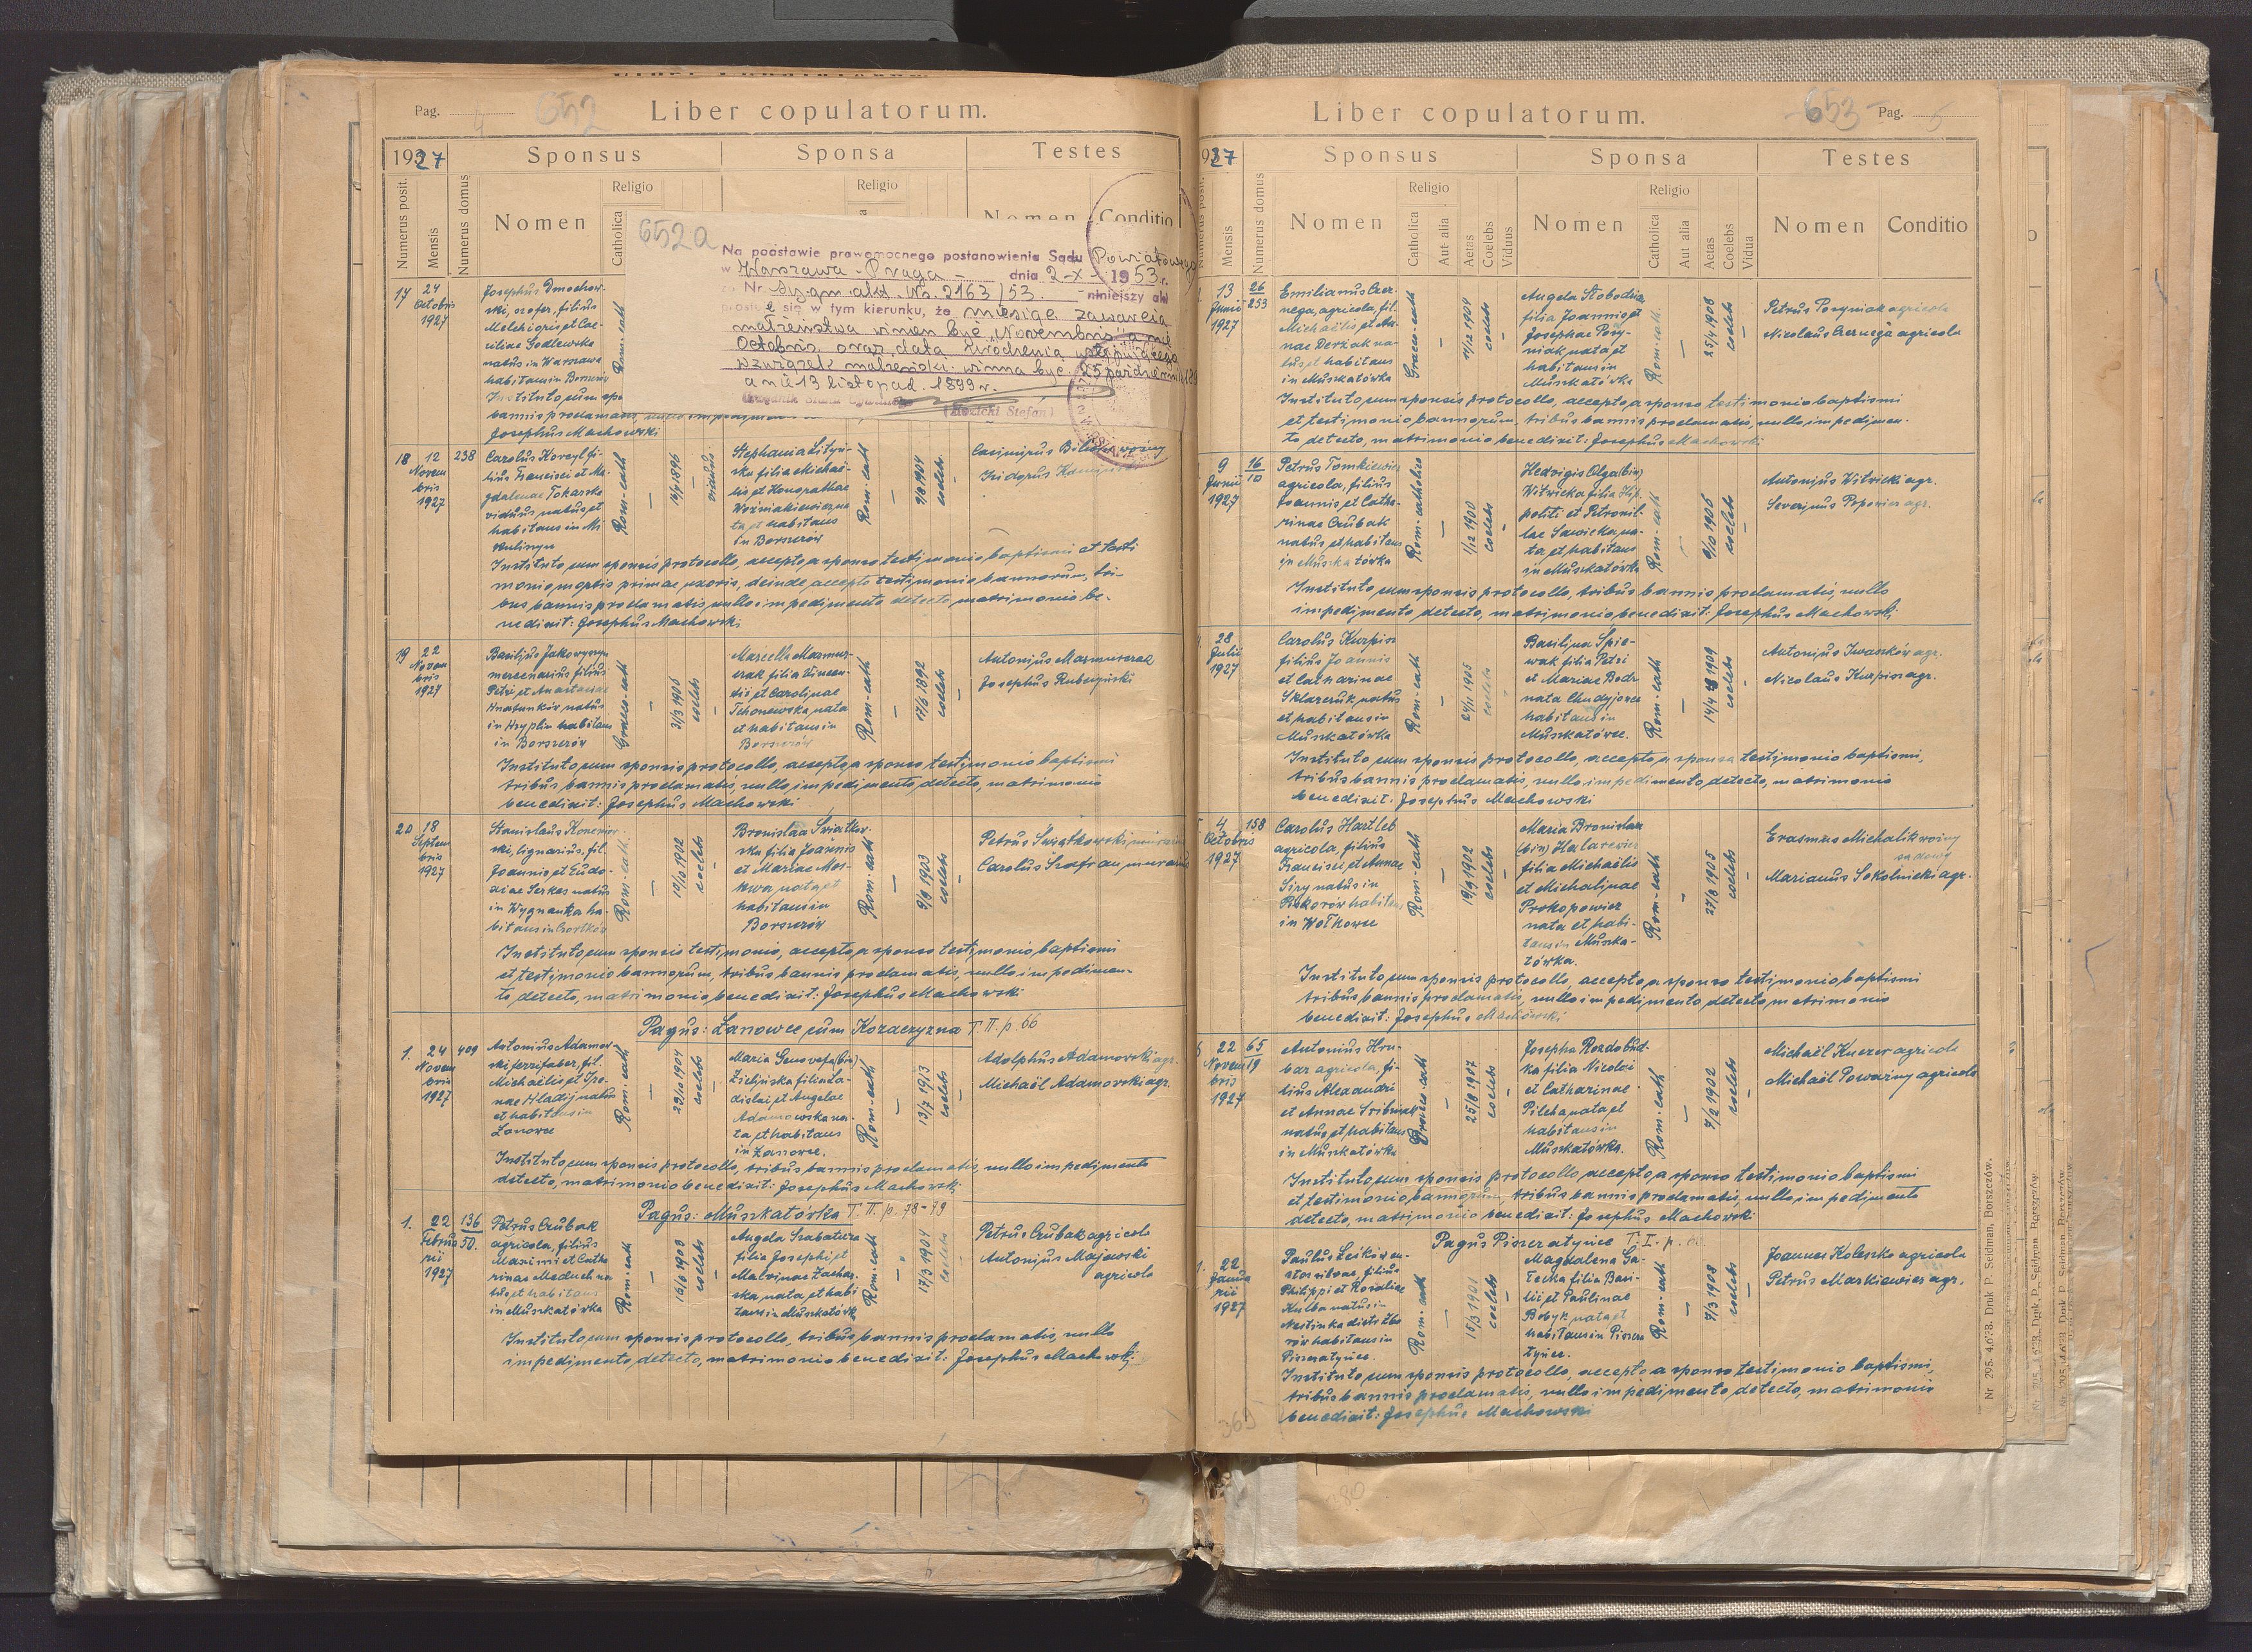 Pag. 4 652 Liber copulatorum.
1927 Sponsus Sponsa Testes
Numerus posit. Mensis Numerus domus Nomen Religio Catholica Religio Nomen Conditio
652a
Na podstawie prawomocnego postanowienia Sądu Powiatowego
w Warszawa-Praga - dnia 2-X- 1953 r.
Nr Syg. akt. No. 2163/53. niniejszy akt
prostuje się w tym kierunku, że miesiąc zawarcia
małżeństwa winien być "Novembris" a nie
Octobris oraz data urodzenia wstępującego
w związek małżeński winna być 25 października
a nie 13 listopad 1899 r.
Urzędnik Stanu Cywilnego
(Rozicki Stefan)
17 24 Octobris 1927
Josephus Dmochow-
ski, szofer, filius
Melchioris et Cae-
ciliae Godlewska
natus in Warszawa
habitans in Borszczów
Rom-cath
Instituto cum
bannis proclamatis,
Josephus Machowski
18 12 Novembris 1927 238
Carolus Korcyl fi-
lius Francisci et Ma-
gdalenae Tokarska
viduus natus et
habitans in Mi-
kulińce
Rom-cath
— 1896 viduus
Stephania Lityń-
ska filia Michae-
lis et Honorathae
Woźniakiewicz na-
ta et habitans
in Borszczów
Rom-cath
— 2/8 1904 coelebs
Casimirus woźny
Isidorus
Instituto cum sponsis protocollo, accepto a sponso testimonio baptismi et testi
monio mortis primae uxoris, deinde accepto testimonio bannorum, tri-
bus bannis proclamatis, nullo impedimento detecto, matrimonio be-
nedixit: Josephus Machowski
19 22 Novembris 1927
Basilius Jakowyszyn
mercenarius filius
Petri et Anastasiae
Hnatunków natus
in Hryplin habitans
in Borszczów
Graeco-cath
— 31/3 1906 coelebs —
Marcella Mazmur-
czak filia Vincen-
tii et Carolinae
Tchonewska nata
et habitans in
Borszczów
Rom-cath
— 17/6 1892 coelebs —
Antonius Mazmurczak
Josephus Rubczyński
Instituto cum sponsis protocollo, accepto a sponso testimonio baptismi
tribus bannis proclamatis, nullo impedimento detecto, matrimonio
benedixit: Josephus Machowski
20 18 Septembris 1927
Stanislaus Konenow-
ski, lignarius, fil.
Joannis et Eudo-
xiae Serkes natus
in Wygnanka ha-
bitans in Czortków
Rom-cath.
— 10/10 1902 coelebs —
Bronislaa Świątkow-
ska filia Joannis
et Mariae Mos-
kwa nata et
habitans in
Borszczów
Rom-cath
— 9/8 1903 coelebs —
Petrus Świątkowski, murarius
Carolus Szafran murarius
Instituto cum sponsis testimonio, accepto a sponso testimonio baptismi
et testimonio bannorum, tribus bannis proclamatis, nullo impedimen-
to detecto, matrimonio benedixit: Josephus Machowski
Pagus: Łanowce cum Kozaczyzna T. II. p. 66
1. 24 Novembris 1927 409
Antonius Adamow-
ski ferrifaber, fil.
Michaëlis et Ire-
nae Hladij natus
et habitans in
Łanowce
Rom-cath
— 29/10 1904 coelebs —
Maria Genovefa (bin)
Zielińska filia La-
dislai et Angelae
Adamowska na-
ta et habitans
in Łanowce.
Rom-cath
— 13/7 1913 coelebs —
Adolphus Adamowski agr.
Michaël Adamowski agr.
Instituto cum sponsis protocollo, tribus bannis proclamatis, nullo impedimento
detecto, matrimonio benedixit: Josephus Machowski
Pagus: Muszkatówka T. II. p. 78-79
1. 22 Februarii 1927 136/50.
Petrus Czubak
agricola, filius
Maximi et Catha
rinae Meduch na
tus et habitans
in Muszkatówka
Rom-cath
— 16/6 1903 coelebs —
Angela Szabatura
filia Josephi et
Malvinae Zachar-
ska, nata et habi
tans in Muszkatówk
Rom-cath
— 17/3 1904 coelebs —
Petrus Czubak agricola
Antonius Majewski
agricola
Instituto cum sponsis protocollo, tribus bannis proclamatis, nullo
impedimento detecto, matrimonio benedixit: Josephus Machowski
Liber copulatorum. 653 Pag. 5
1927 Sponsus Sponsa Testes
Numerus posit. Mensis Numerus domus Nomen Religio Catholica Aut alia Aetas Coelebs Viduus Nomen Religio Catholica Aut alia Aetas Coelebs Vidua Nomen Conditio
13 Junii 1927 26/253
Emilianus Czer-
nega, agricola, fil.
Michaëlis et An-
nae Derżak na-
tus et habitans
in Muszkatówka
Graeco-cath
— 21/12 1904 coelebs —
Angela Słobodzian
filia Joannis et
Josephae Posy-
niak nata et
habitans in
Muszkatówka
Rom-cath.
— 25/4 1908 coelebs —
Petrus Posyniak agricola
Nicolaus Czernega agricola
Instituto cum sponsis protocollo, accepto a sponso testimonio baptismi
et testimonio bannorum, tribus bannis proclamatis, nullo impedimen-
to detecto, matrimonio benedixit: Josephus Machowski
9 Junii 1927 16/10
Petrus Tomkiewicz
agricola, filius
Joannis et Catha-
rinae Czubak
natus et habitans
in Muszkatówka
Rom-catholica
— 1/12 1900 coelebs —
Hedvigis Olga (bin)
Witwicka filia Hip-
politi et Petronil-
lae Sawicka, na-
ta et habitans
in Muszkatówka
Rom-cath
— 9/10 1906 coelebs —
Antonius Witwicki agr.
Severinus Popowicz agr.
Instituto cum sponsis protocollo, tribus bannis proclamatis, nullo
impedimento detecto, matrimonio benedixit: Josephus Machowski
28 Julii 1927
Carolus Kurpisz
filius Joannis
et Catharinae
Sklarczuk, natus
et habitans in
Muszkatówka
Rom-cath
— 24/11 1905 coelebs —
Basilina Śpie-
wak filia Petri
et Mariae Bodz
nata Chudyjowce
habitans in
Muszkatówce.
Rom-cath
— 14/4 1909 coelebs —
Antonius Iwasków agr.
Nicolaus Kurpisz agr.
Instituto cum sponsis protocollo, accepto a sponsa testimonio baptismi,
tribus bannis proclamatis, nullo impedimento detecto, matrimonio
benedixit: Josephus Machowski
4 Octobris 1927 158
Carolus Hartleb
agricola, filius
Francisci et Annae
Siry natus in
Piskorów habitans
in Wołkowce
Rom-cath
— 19/9 1902 coelebs —
Maria Bronislaa
(bin) Halarewicz
filia Michaëlis
et Michalinae
Prokopowicz
nata et habi-
tans in Muszka-
tówka.
Rom-cath
— 27/8 1905 coelebs —
Erasmus Michalik woźny
sądowy
Marianus Sokolnicki agr.
Instituto cum sponsis protocollo, accepto a sponso testimonio baptismi
tribus bannis proclamatis, nullo impedimento detecto matrimonio
benedixit: Josephus Machowski
22 Novembris 1927 65/19
Antonius Hru-
bar agricola, fi-
lius Alexandri
et Annae Sribniak
natus et habitans
in Muszkatówka
Graeco-cath
— 25/8 1907 coelebs —
Josepha Rozdobud-
ka filia Nicolai
et Catharinae
Pilcha nata et
habitans in
Muszkatówka.
Rom-cath
— 7/2 1902 coelebs —
Michaël Kuczer agricola
Michaël Poważny agricola
Instituto cum sponsis protocollo, accepto a sponso testimonio baptismi
et testimonio bannorum, tribus bannis proclamatis, nullo impedimento
detecto, matrimonio benedixit: Josephus Machowski
Pagus Piszczatyńce T. I. p.
1. 22 Januarii 1927
Paulus Leśków cu-
stos silvae, filius
Philippi et Rosaliae
Kulba natus in
Nestinka distr. Zbo
rów habitans in
Piszczatyńce.
Rom-cath
— 15/3 1901 coelebs —
Magdalena Ga-
łecka filia Basi-
lii et Paulinae
Bobyk nata et
habitans in Piszcza
tyńce.
Rom-cath
— 7/3 1908 coelebs —
Joannes Koleszko agricola
Petrus Markiewicz agr.
Instituto cum sponsis protocollo, accepto a sponso testimonio baptismi,
tribus bannis proclamatis, nullo impedimento detecto, matrimonio
benedixit: Josephus Machowski
365
Nr 295. 4.6'33. Druk P. Seidman, Borszczów.